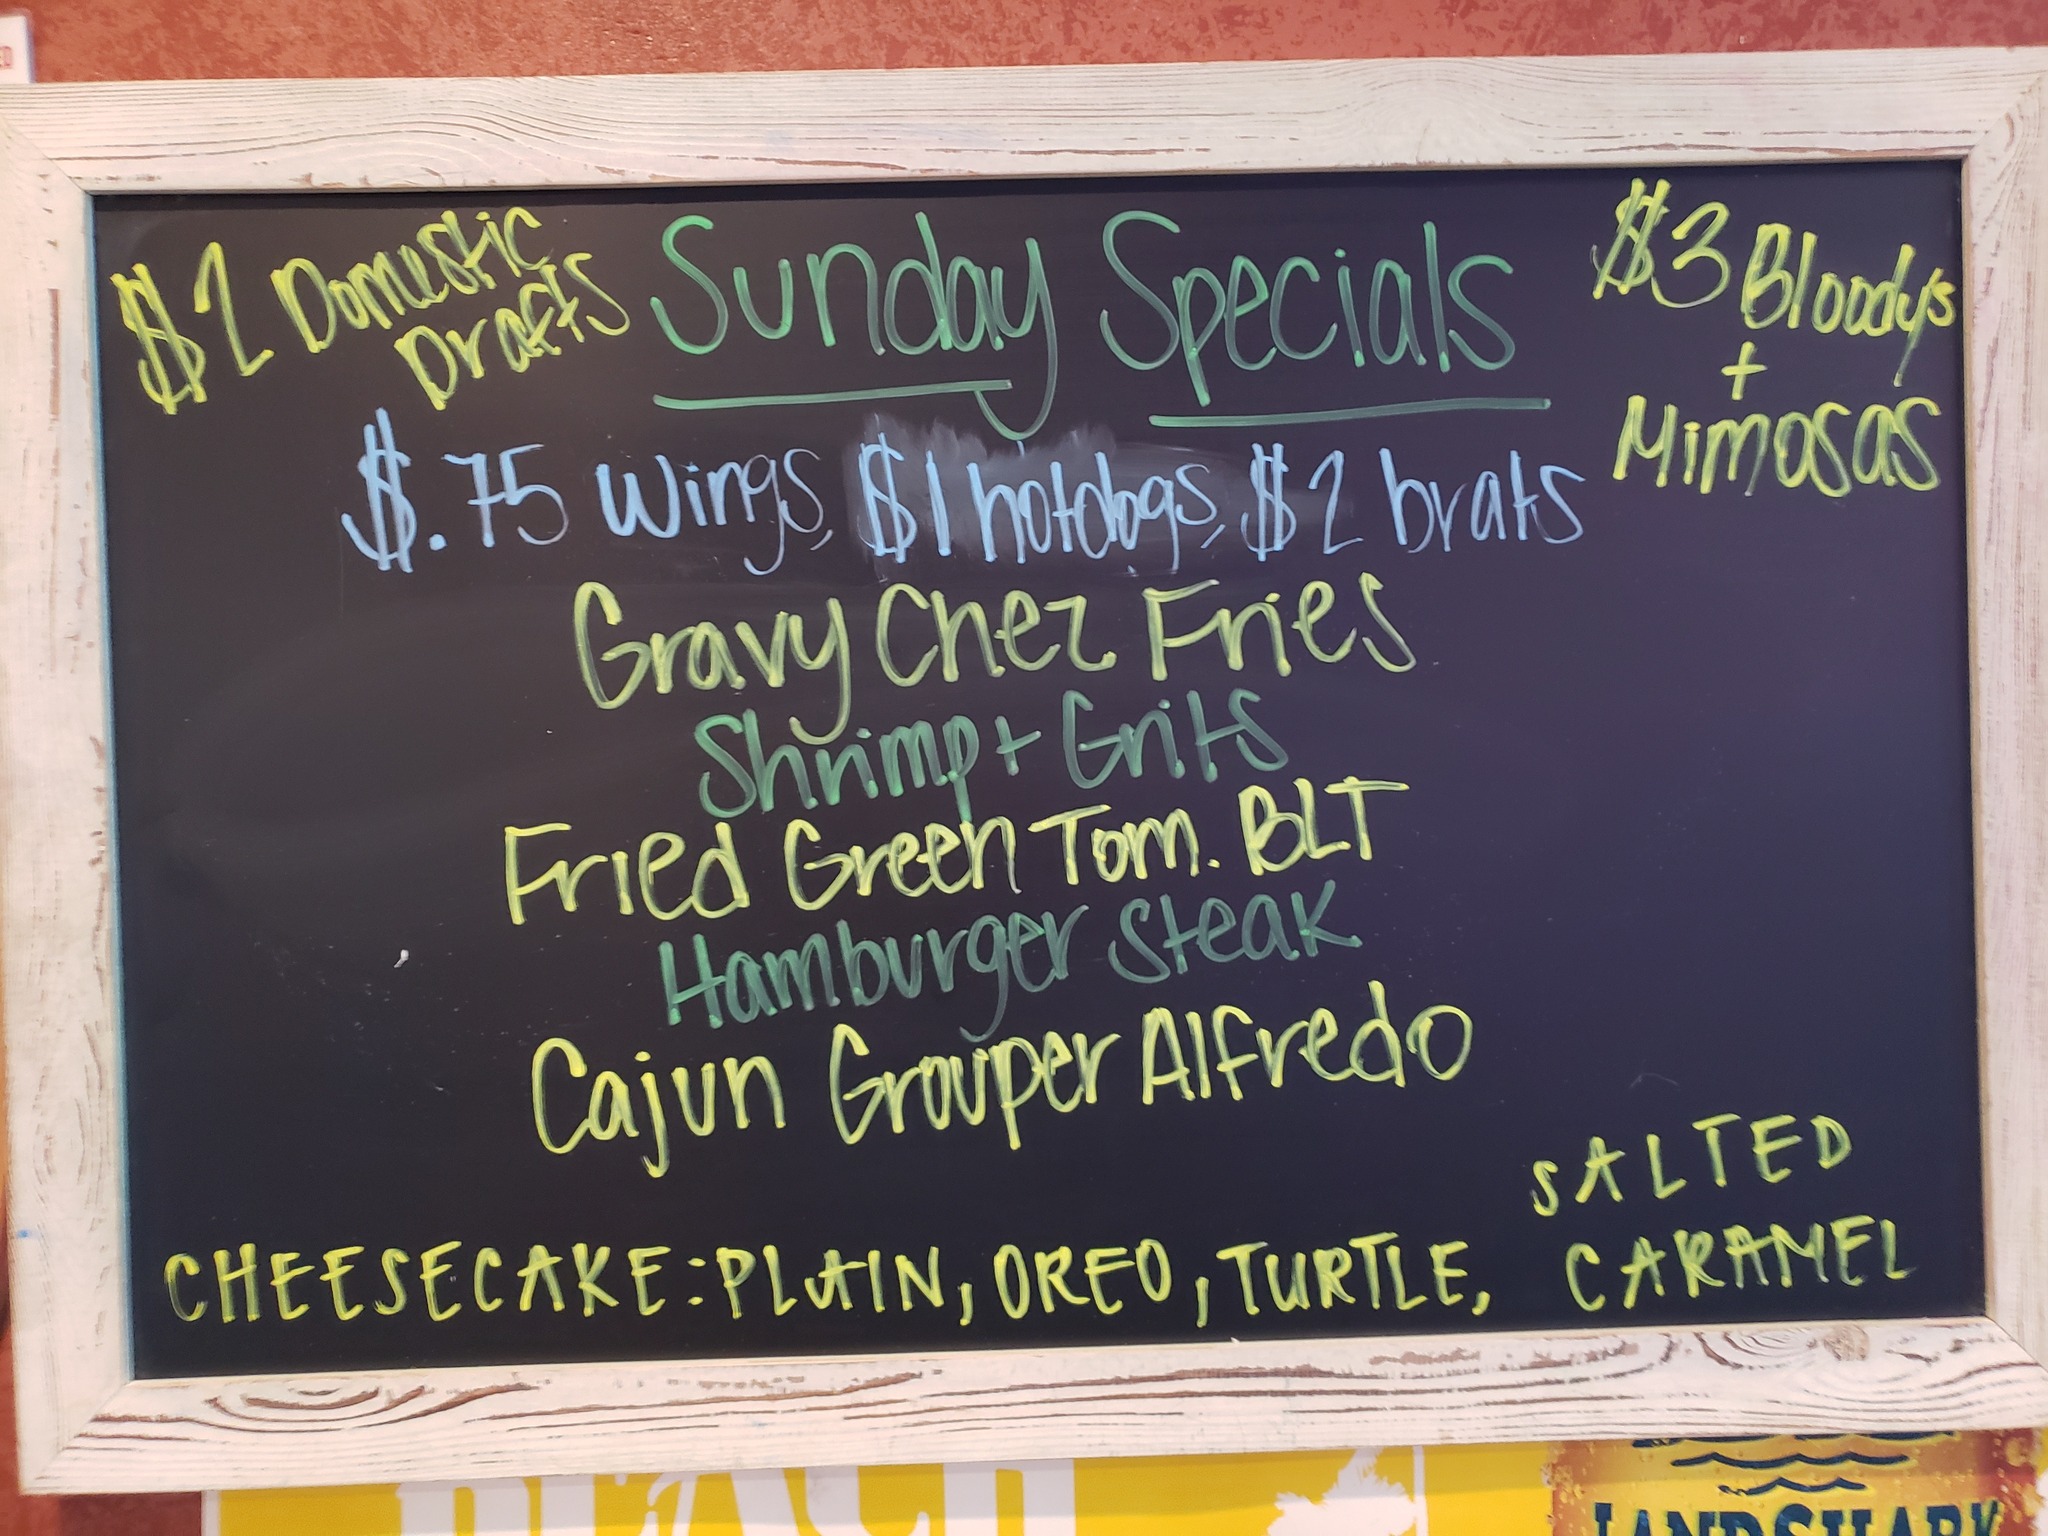 $2 Domestic
Drafts
Sunday Specials
$3 Bloody's
+
Mimosas
$.75 Wings, $1 hotdogs, $2 brats
Gravy Chez Fries
Shrimp + Grits
Fried Green Tom. BLT
Hamburger Steak
Cajun Grouper Alfredo
SALTED
CHEESECAKE: PLAIN, OREO, TURTLE, CARAMEL
LANDSHARK